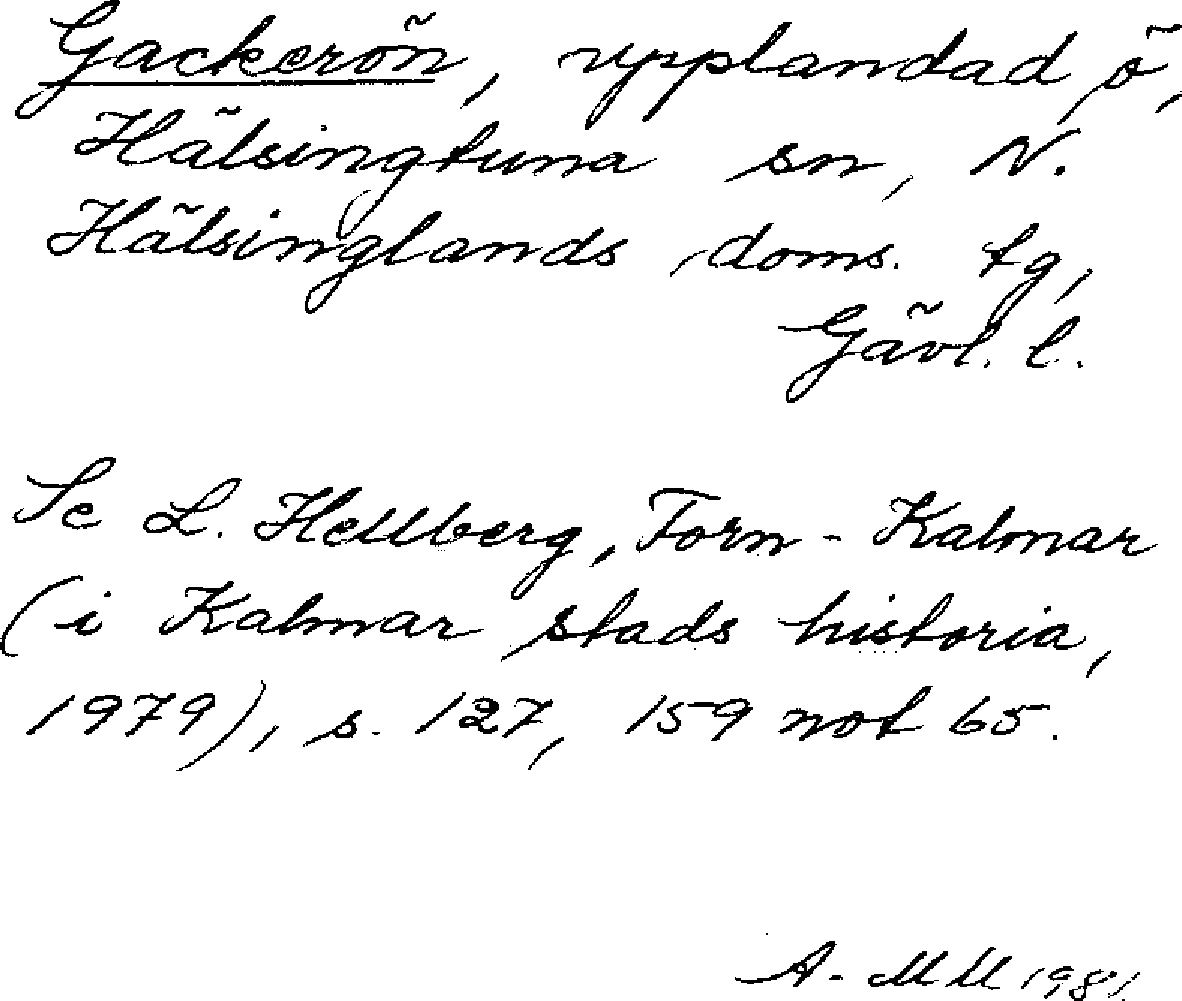 Gackerön, upplandad ö,
Hälsingtuna sn, N.
Hälsinglands doms. tg,
Gävl. l.
Se L. Hellberg, Forn-Kalmar
(i Kalmar stads historia,
1979), s. 127, 159 not 65.
A-MM 1981